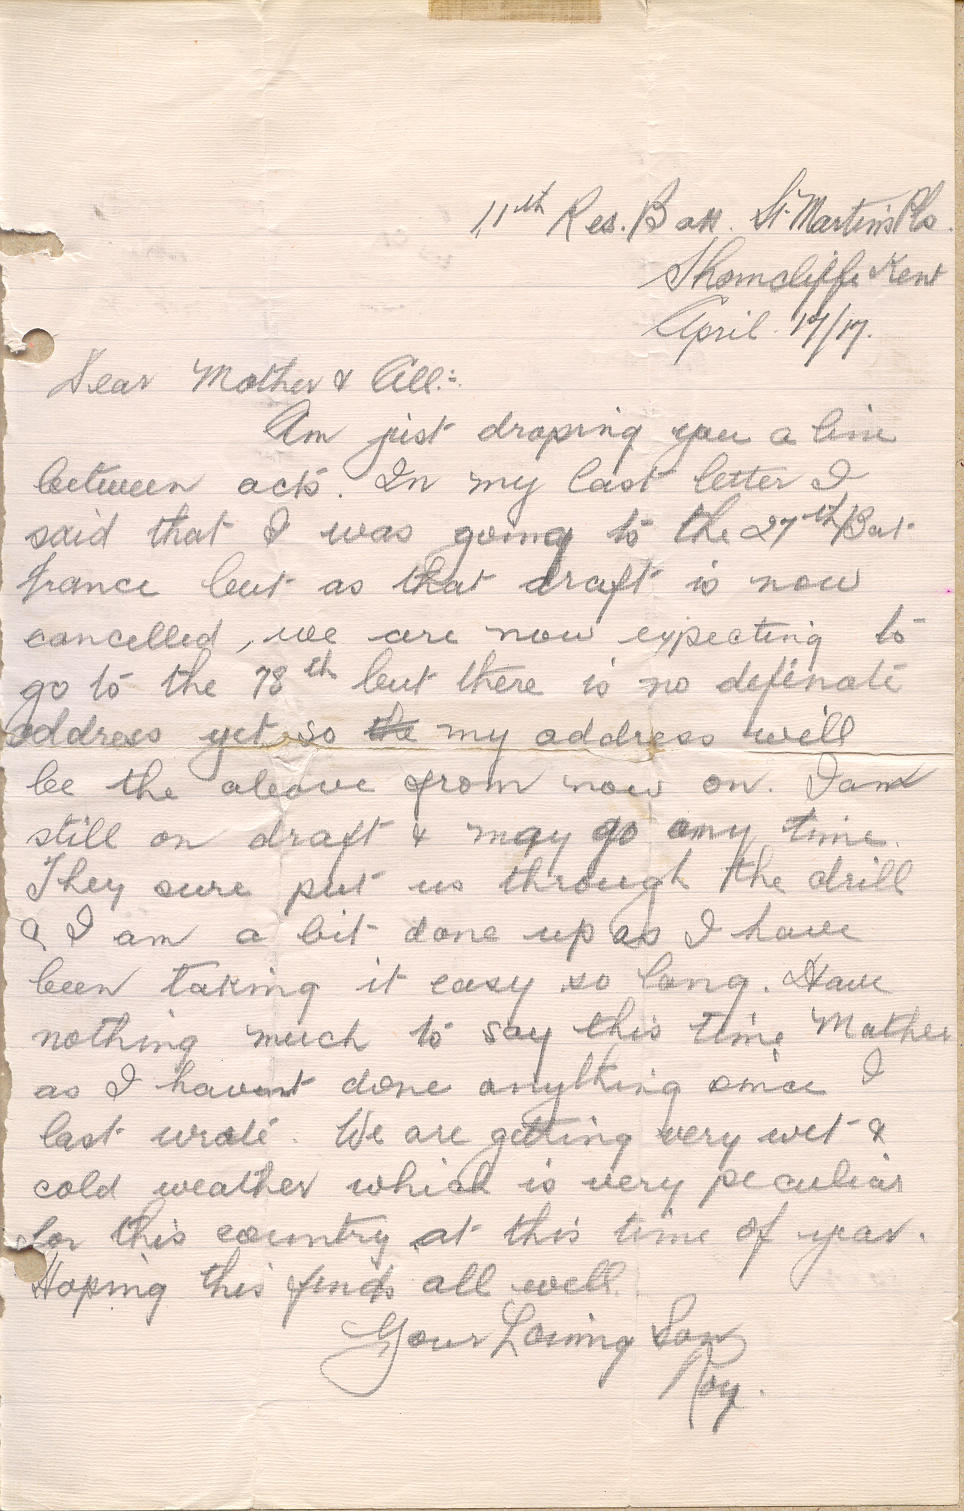 11th Res. Batt. St. Martin's Pla.
Shorncliffe Kent
April 17/17.
Dear Mother & All:-
Am just droping you a line
between acts. In my last letter I
said that I was going to the 27th Bat.
france but as that draft is now
cancelled, we are now expecting to
go to the 78th but there is no definate
address yet so my address will
be the above from now on. I am
still on draft & may go any time.
They sure put us through the drill
& I am a bit done up as I have
been taking it easy so long. Have
nothing much to say this time Mother
as I havent done anything since I
last wrote. We are getting very wet &
cold weather which is very peculiar
for this country at this time of year.
Hoping this finds all well.
Your Loving Son
Roy.